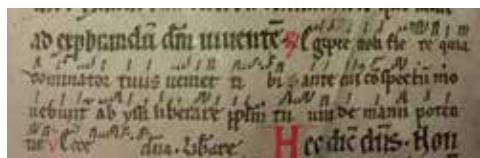 ad exphrandū dm̄ uiuentē. Egipte noli fle re quia
dominator tuus ueniet ti bi ante cui cōspectū mo
uebunt ab yssi liberare ip̄lm̄ tū um de manu poten
tie ℣ Ecce dn̄a. Lib̄are Hec dic̄ dn̄s. Non